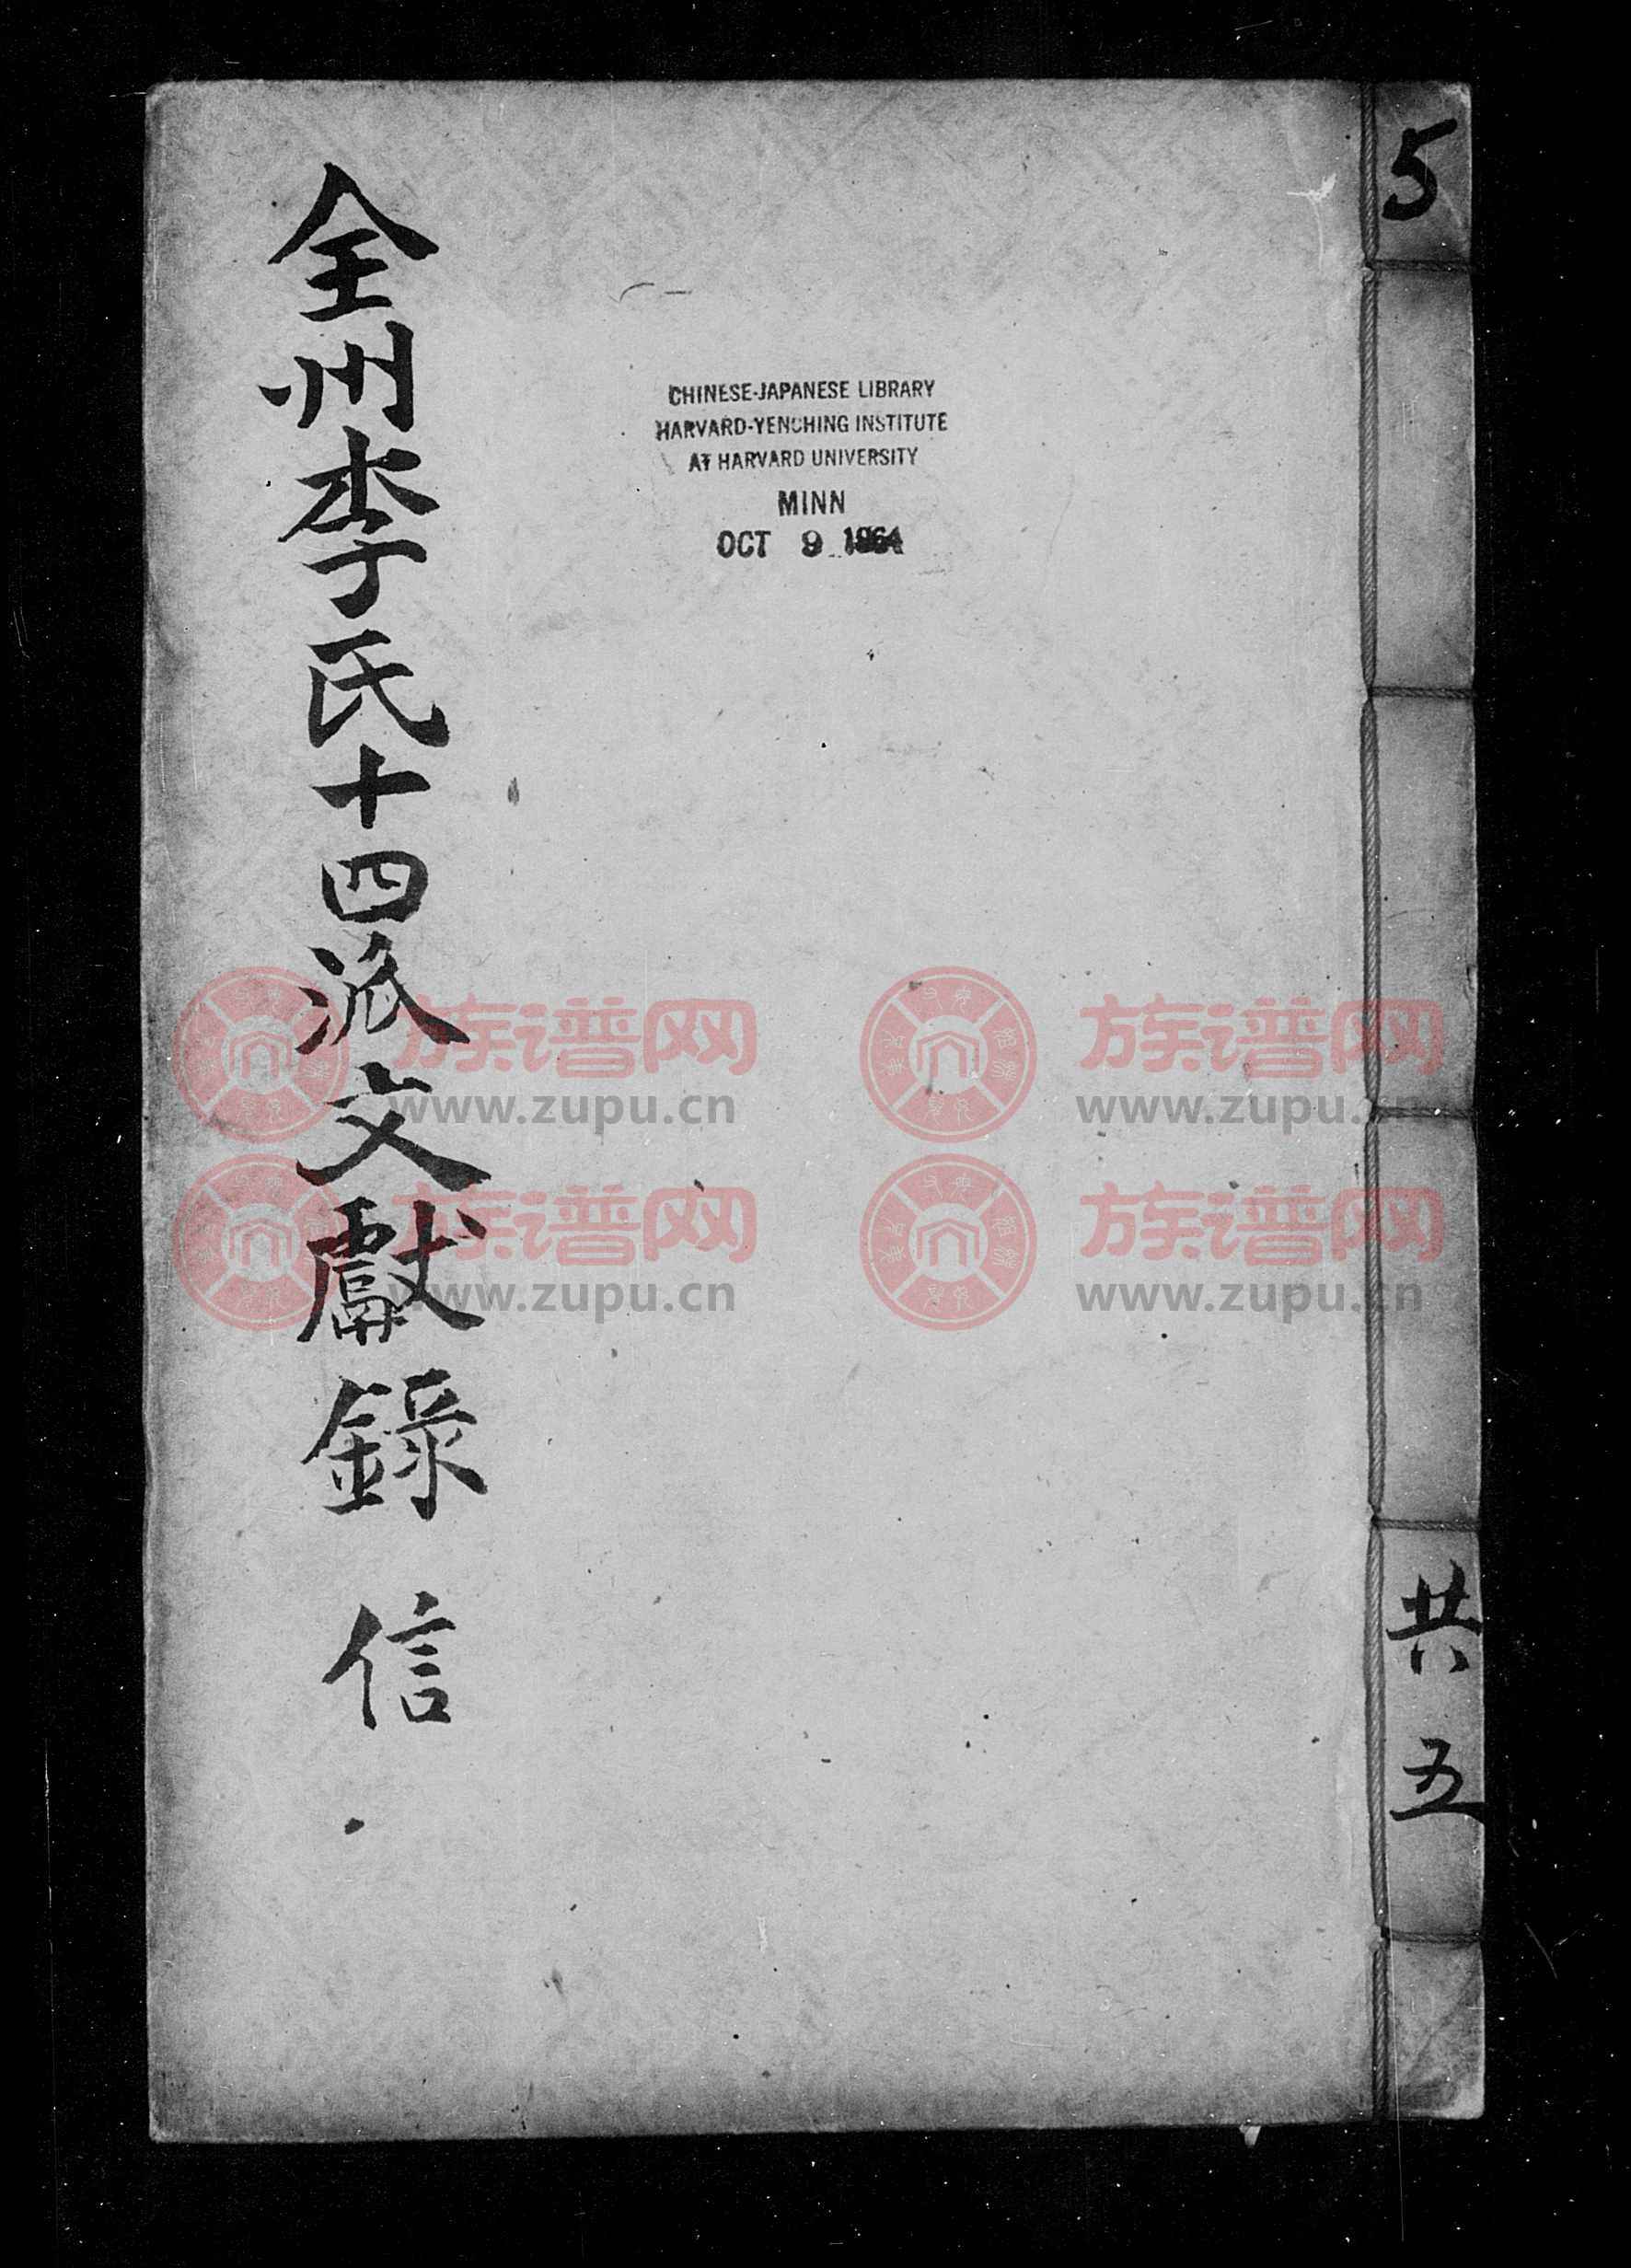 5
共五
CHINESE-JAPANESE LIBRARY
HARVARD-YENCHING INSTITUTE
AT HARVARD UNIVERSITY
MINN
OCT 9 1964
全州李氏十四派文獻錄 信
族谱网
www.zupu.cn
族谱网
www.zupu.cn
族谱网
www.zupu.cn
族谱网
www.zupu.cn